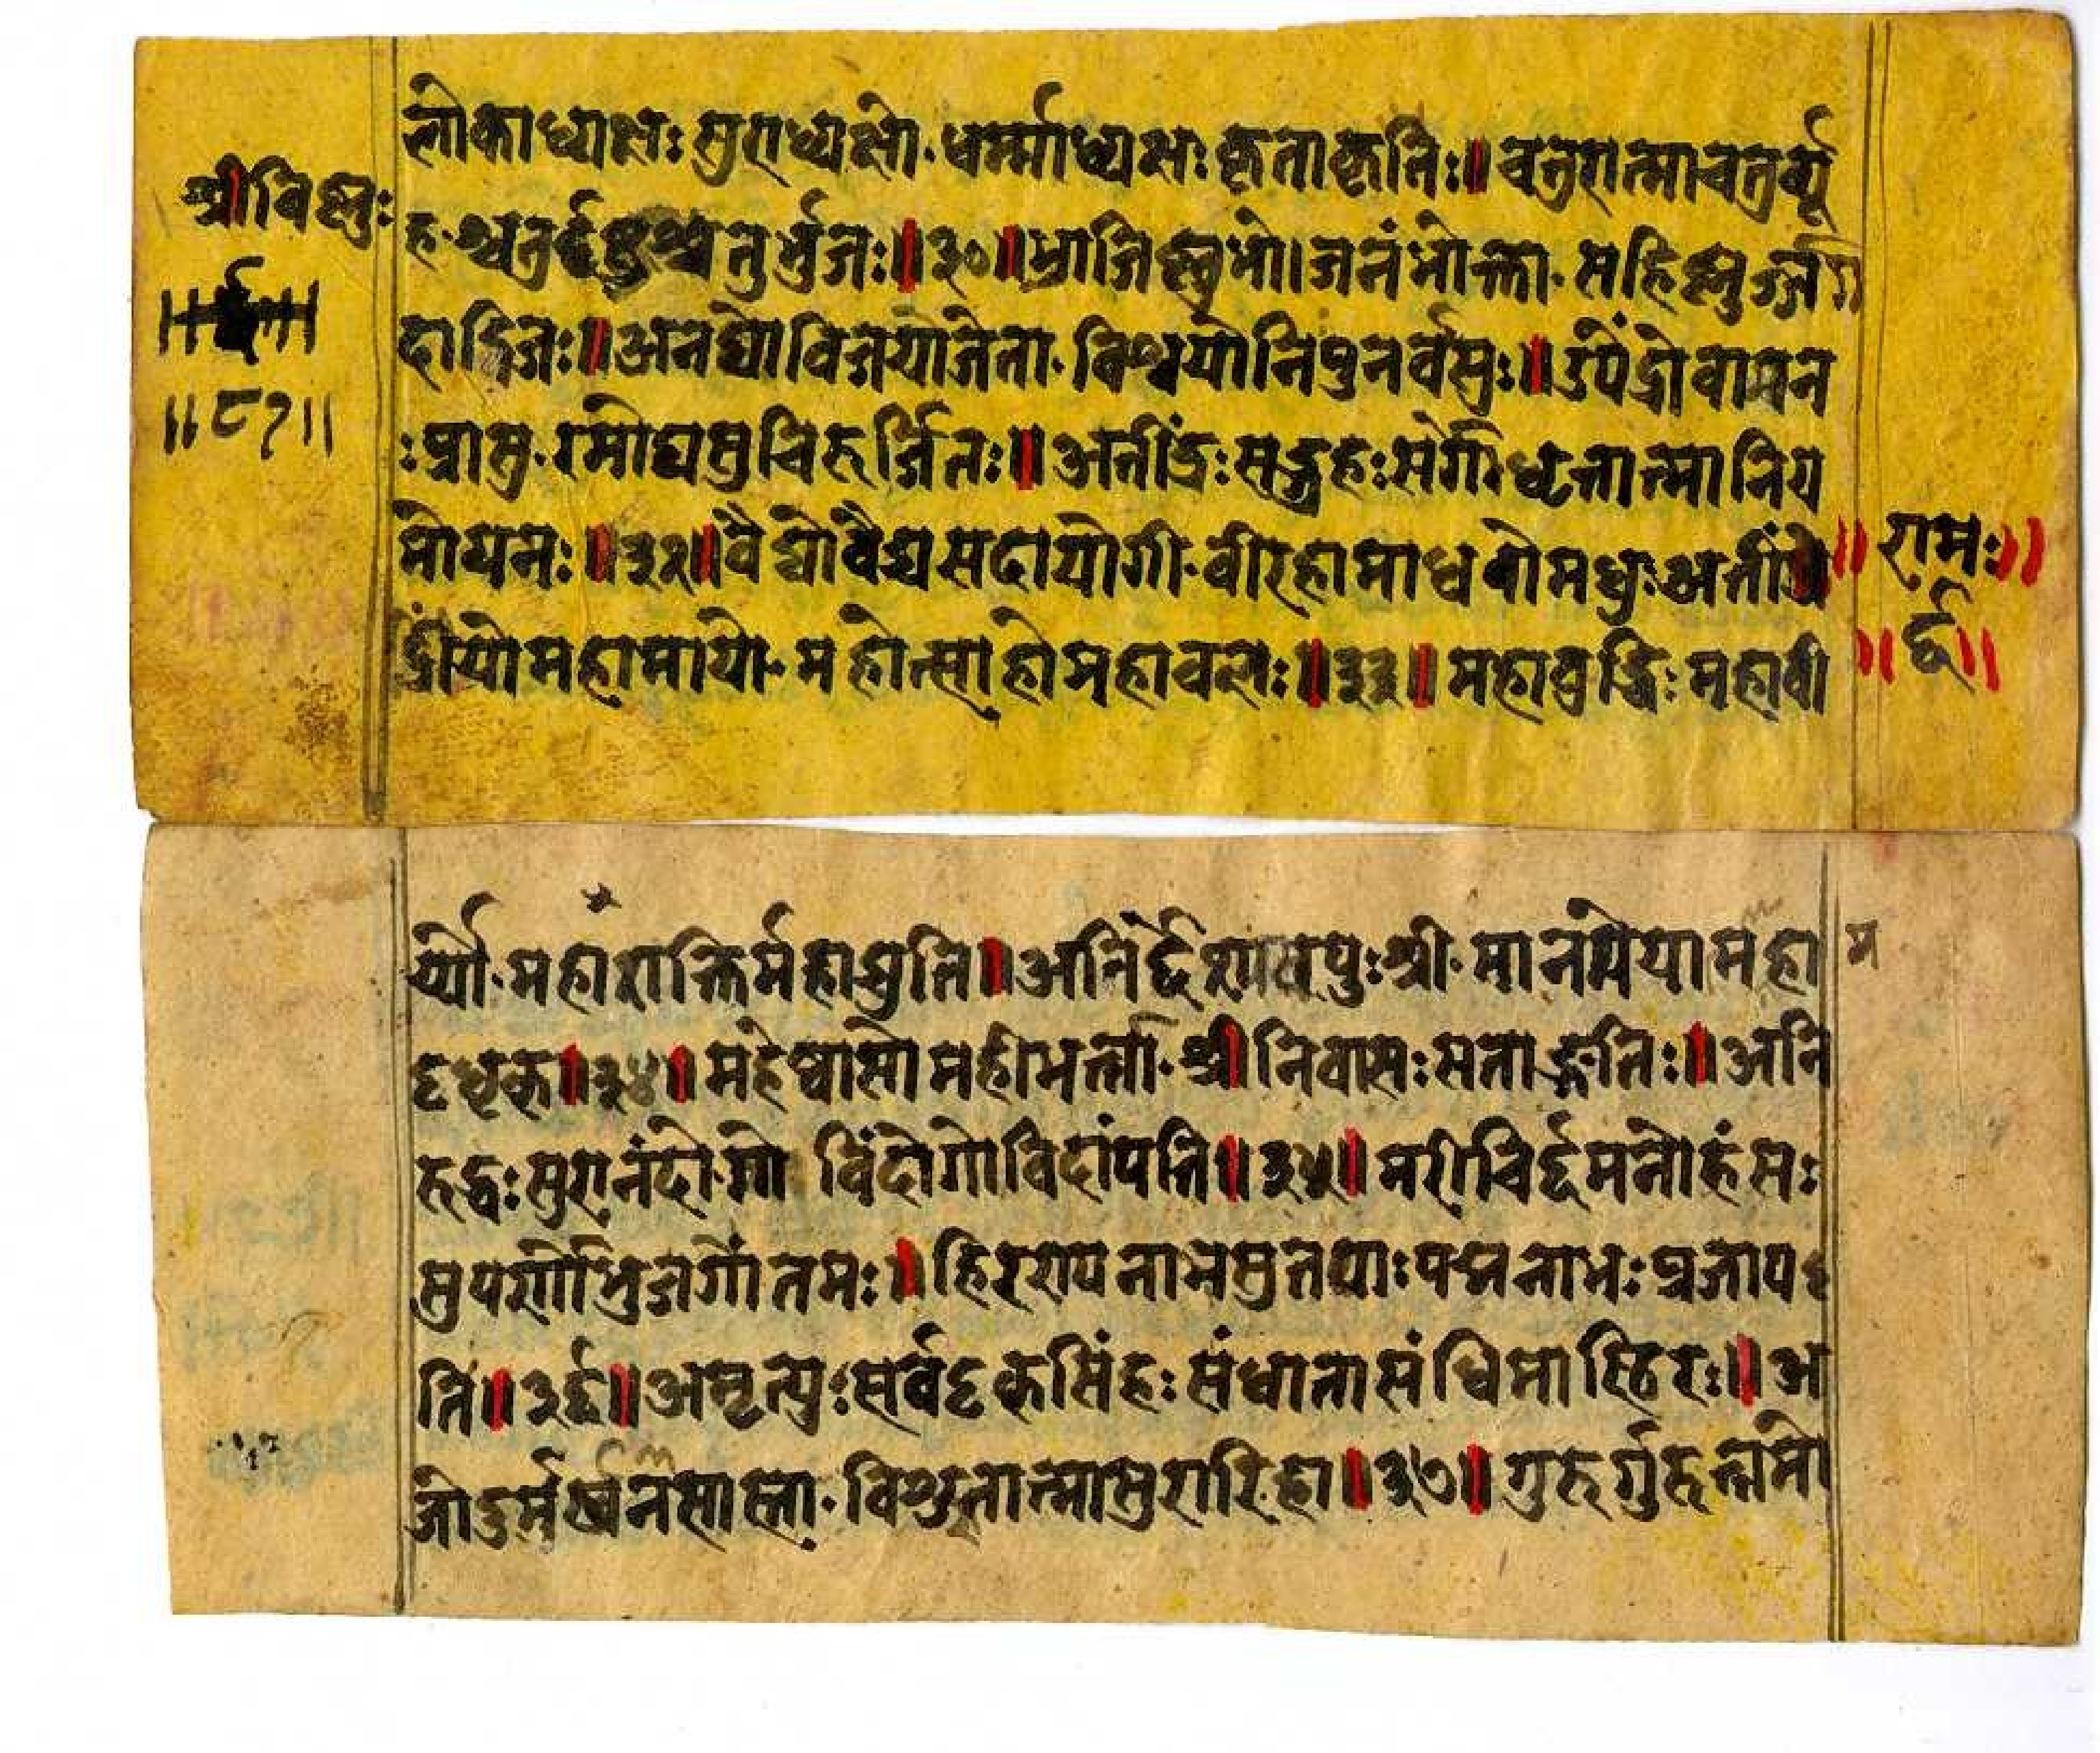 लोकाध्यक्षः सुराध्यक्षो॰ धर्म्माध्यक्षः कृताकृतिः॥ चतुरात्माचतुर्व्यू
श्रीविष्णुः
ह॰श्चतुर्द्दंष्ट्रश्चतुर्भुजः॥३०॥भ्राजिष्णुभो।जनंभोक्ता॰ सहिष्णुर्ज्जग
दादिजः॥अनघोविजयोजेता॰ विश्वयोनिपुनर्वसुः॥उपेंद्रोवामन
॥८१॥
ःप्रासु॰रमोघसुचिरूर्ज्जितः॥ अतींद्रः सङ्ग्रहः सर्गो धृतात्मानिय
मोयमः॥३२॥वैद्योवैद्यसदायोगी॰वीरहामाधवोमधुः अतीं
॥ रामः॥
द्रीयोमहामायो॰ महोत्साहोमहावलः॥३३॥ महावुद्धिः महावी
॥ ६॥
र्य्यो॰महाशक्तिर्महाद्युति॥अनिर्द्देश्यवपुःश्रीमानमेयामहा
दृधृक॥३४॥महेष्वासोमहीभर्त्ता॰ श्रीनिवासः सताङ्गतिः॥अनि
रुद्धः सुरानंदो॰गो विंदोगोविदांपति॥३५॥मरीचिर्द्दमनोहंसः
सुपर्णोभुजगोतमः॥हिरण्यनाभसुतपाः पद्मनाभः प्रजाप
ति॥३६॥अमृत्युः सर्वदृकसिंहः संधातासंधिमास्थिरः॥अ
जोदुर्मर्षनसास्ता॰ विश्रुतात्मासुरारिहा॥३७॥ गुरुर्गुरूत्तमो